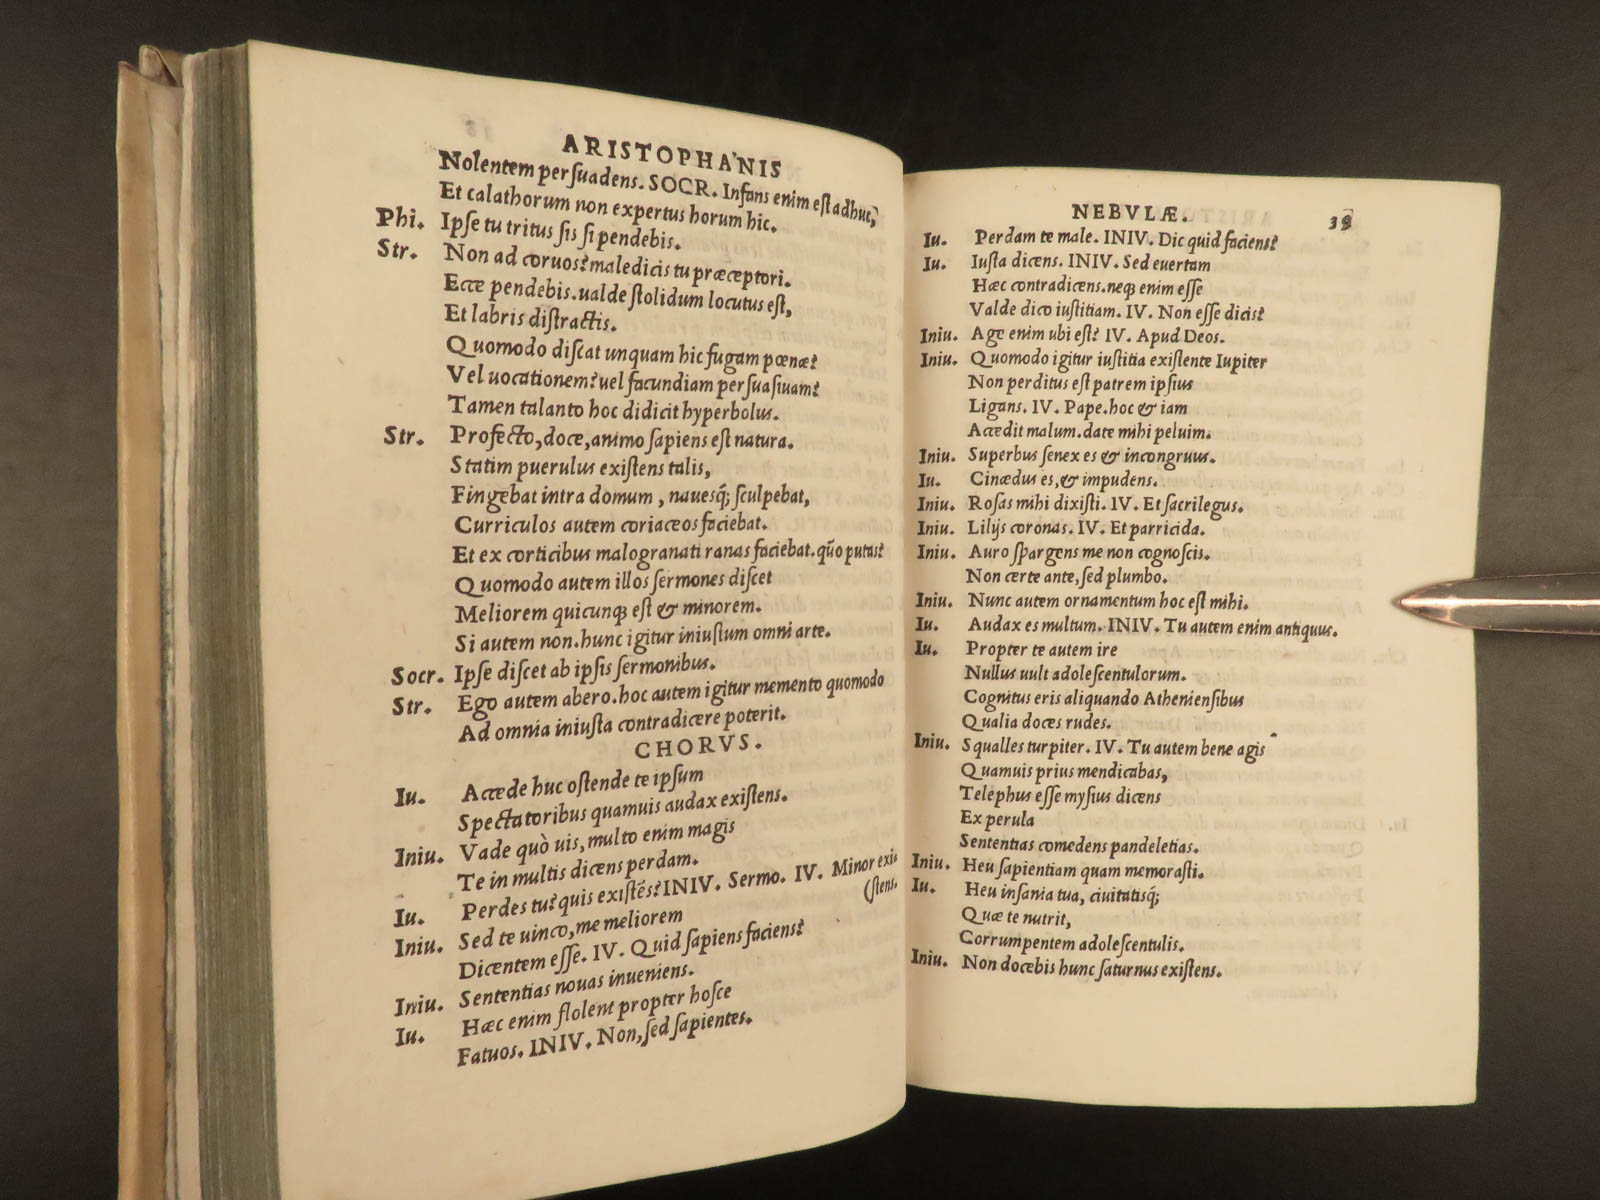 ARISTOPHANIS
Nolentem perſuadens. SOCR. Infans enim eſt adhuc,
Et calathorum non expertus horum hic.
Phi. Ipſe tu tritus ſis ſi pendebis.
Str. Non ad coruos? maledicis tu præceptori.
Ecce pendebis. ualde ſtolidum locutus eſt,
Et labris diſtractis.
Quomodo diſcat unquam hic fugam pœnæ?
Vel uocationem? uel facundiam perſuaſiuam?
Tamen talanto hoc didicit hyperbolus.
Str. Profecto, doce, animo ſapiens eſt natura.
Statim puerulus exiſtens talis,
Fingebat intra domum, nauesq; ſculpebat,
Curriculos autem coriaceos faciebat.
Et ex corticibus malogranati ranas faciebat. quō putas?
Quomodo autem illos ſermones diſcet
Meliorem quicunq; eſt & minorem.
Si autem non. hunc igitur iniuſtum omni arte.
Socr. Ipſe diſcet ab ipſis ſermonibus.
Str. Ego autem abero. hoc autem igitur memento quomodo
Ad omnia iniuſta contradicere poterit.
CHORVS.
Iu. Accede huc oſtende te ipſum
Spectatoribus quamuis audax exiſtens.
Iniu. Vade quò uis, multo enim magis
Te in multis dicens perdam.
Iu. Perdes tu? quis exiſtēs? INIV. Sermo. IV. Minor exi
(ſtens.
Iniu. Sed te uinco, me meliorem
Dicentem eſſe. IV. Quid ſapiens faciens?
Iniu. Sententias nouas inueniens.
Iu. Hæc enim flolent propter hoſce
Fatuos. INIV. Non, ſed ſapientes.
NEBVLÆ. 39
Iu. Perdam te male. INIV. Dic quid faciens?
Iu. Iuſta dicens. INIV. Sed euertam
Hæc contradicens. neq; enim eſſe
Valde dico iuſtitiam. IV. Non eſſe dicis?
Iniu. Age enim ubi eſt? IV. Apud Deos.
Iniu. Quomodo igitur iuſtitia exiſtente Iupiter
Non perditus eſt patrem ipſius
Ligans. IV. Pape. hoc & iam
Accedit malum. date mihi peluim.
Iniu. Superbus ſenex es & incongruus.
Iu. Cinædus es, & impudens.
Iniu. Roſas mihi dixiſti. IV. Et ſacrilegus.
Iniu. Lilijs coronas. IV. Et parricida.
Iniu. Auro ſpargens me non cognoſcis.
Non certe ante, ſed plumbo.
Iniu. Nunc autem ornamentum hoc eſt mihi.
Iu. Audax es multum. INIV. Tu autem enim antiquus.
Iu. Propter te autem ire
Nullus uult adoleſcentulorum.
Cognitus eris aliquando Athenienſibus
Qualia doces rudes.
Iniu. Squalles turpiter. IV. Tu autem bene agis
Quamuis prius mendicabas,
Telephus eſſe myſius dicens
Ex perula
Sententias comedens pandeletias.
Iniu. Heu ſapientiam quam memoraſti.
Iu. Heu inſania tua, ciuitatisq;
Quæ te nutrit,
Corrumpentem adoleſcentulis.
Iniu. Non docebis hunc ſaturnus exiſtens.